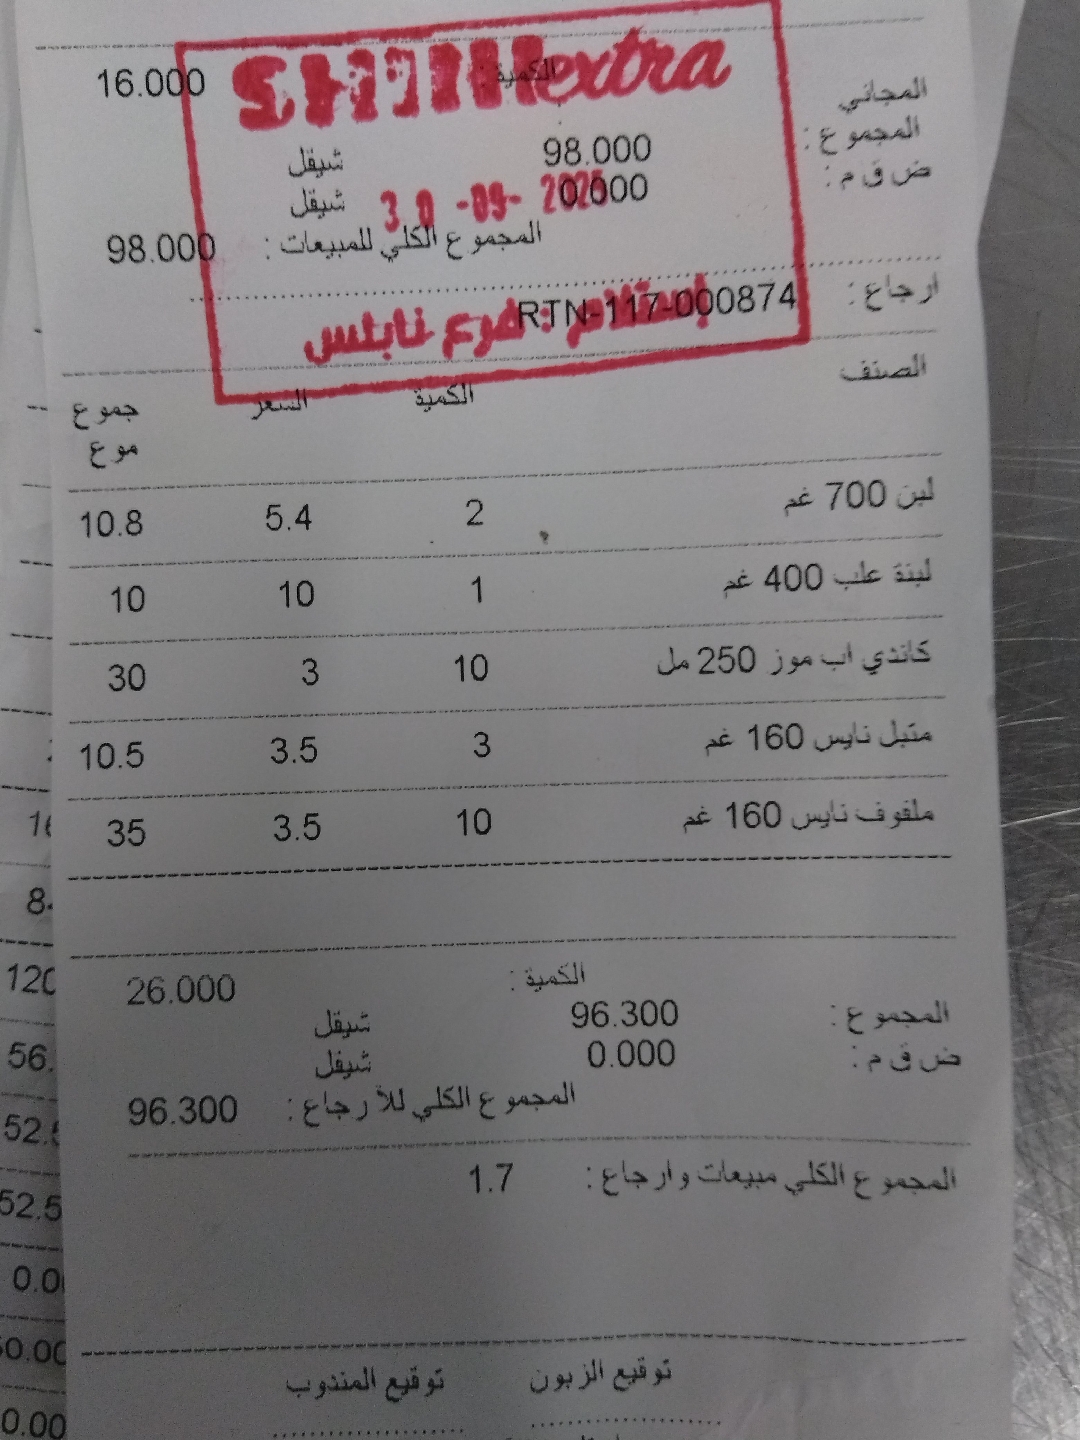 الكمية: 16.000
extra
المجاني
المجموع: 98.000 شيقل
ض ق م: 0.000 شيقل
30 -09- 2025
المجموع الكلي للمبيعات: 98.000
ارجاع: RTN-117-000874
إستلام: فرع نابلس
الصنف الكمية السعر جموع
موع
لبن 700 غم 2 5.4 10.8
لبنة علب 400 غم 1 10 10
كاندي اب موز 250 مل 10 3 30
متبل نايس 160 غم 3 3.5 10.5
ملفوف نايس 160 غم 10 3.5 35
الكمية: 26.000
المجموع: 96.300 شيقل
ض ق م: 0.000 شيقل
المجموع الكلي للأرجاع: 96.300
المجموع الكلي مبيعات وارجاع: 1.7
توقيع الزبون توقيع المندوب
120
56.
52.5
52.5